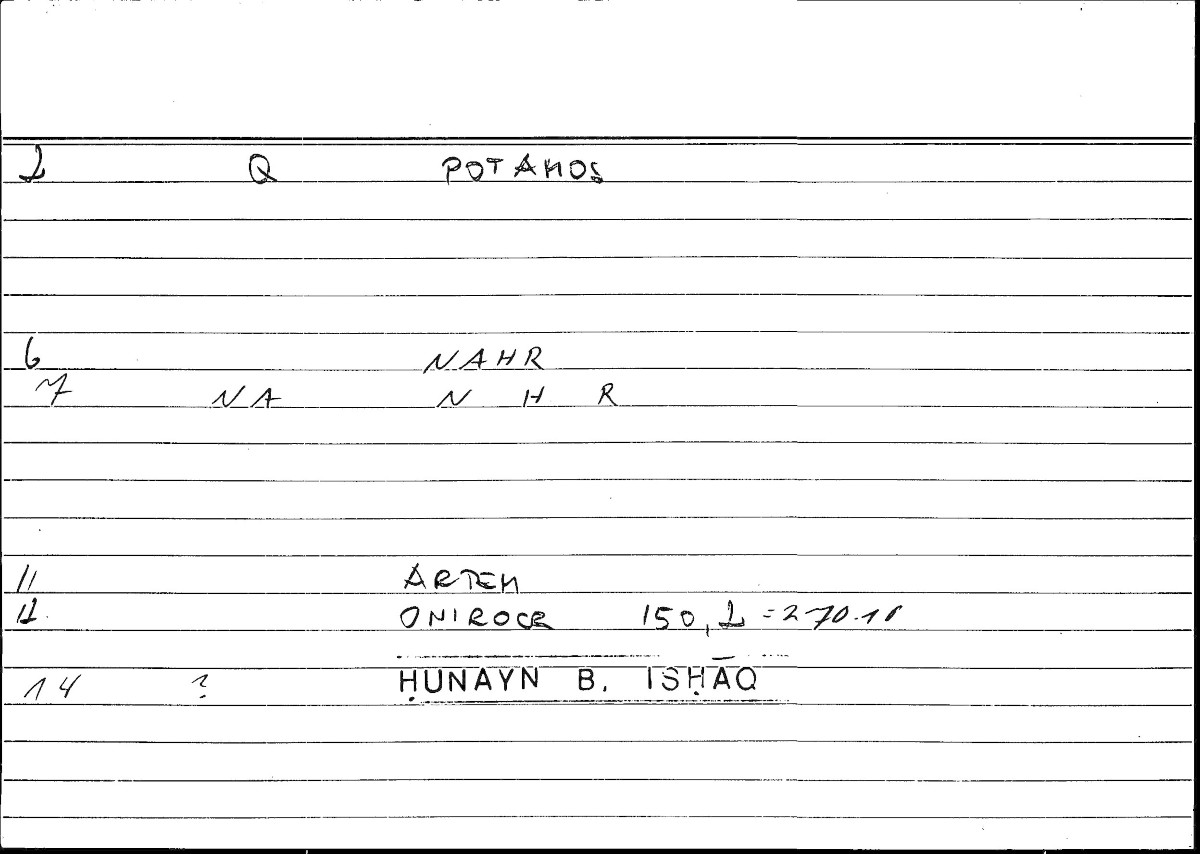 2 Q POTAMOS
6 NAHR
7 NA N H R
11 ARTEM
12 ONIROCR 150,2 = 270.
14 ? ḤUNAYN B. ISḤĀQ